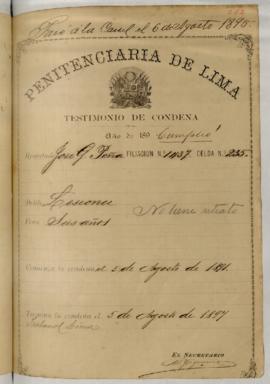 Pasó á la Carcel el 6 de Agosto 1895.
PENITENCIARIA DE LIMA
TESTIMONIO DE CONDENA
Año de 189 Cumplió
José G. Peña FILIACION N. 1437 CELDA N. 255.
Delito Lesiones
No tiene retrato
Pena Seis años
Comienza la condena el 5 de Agosto de 1891.
Termina la condena el 5 de Agosto de 1897
Tribunal Lima
EL SECRETARIO